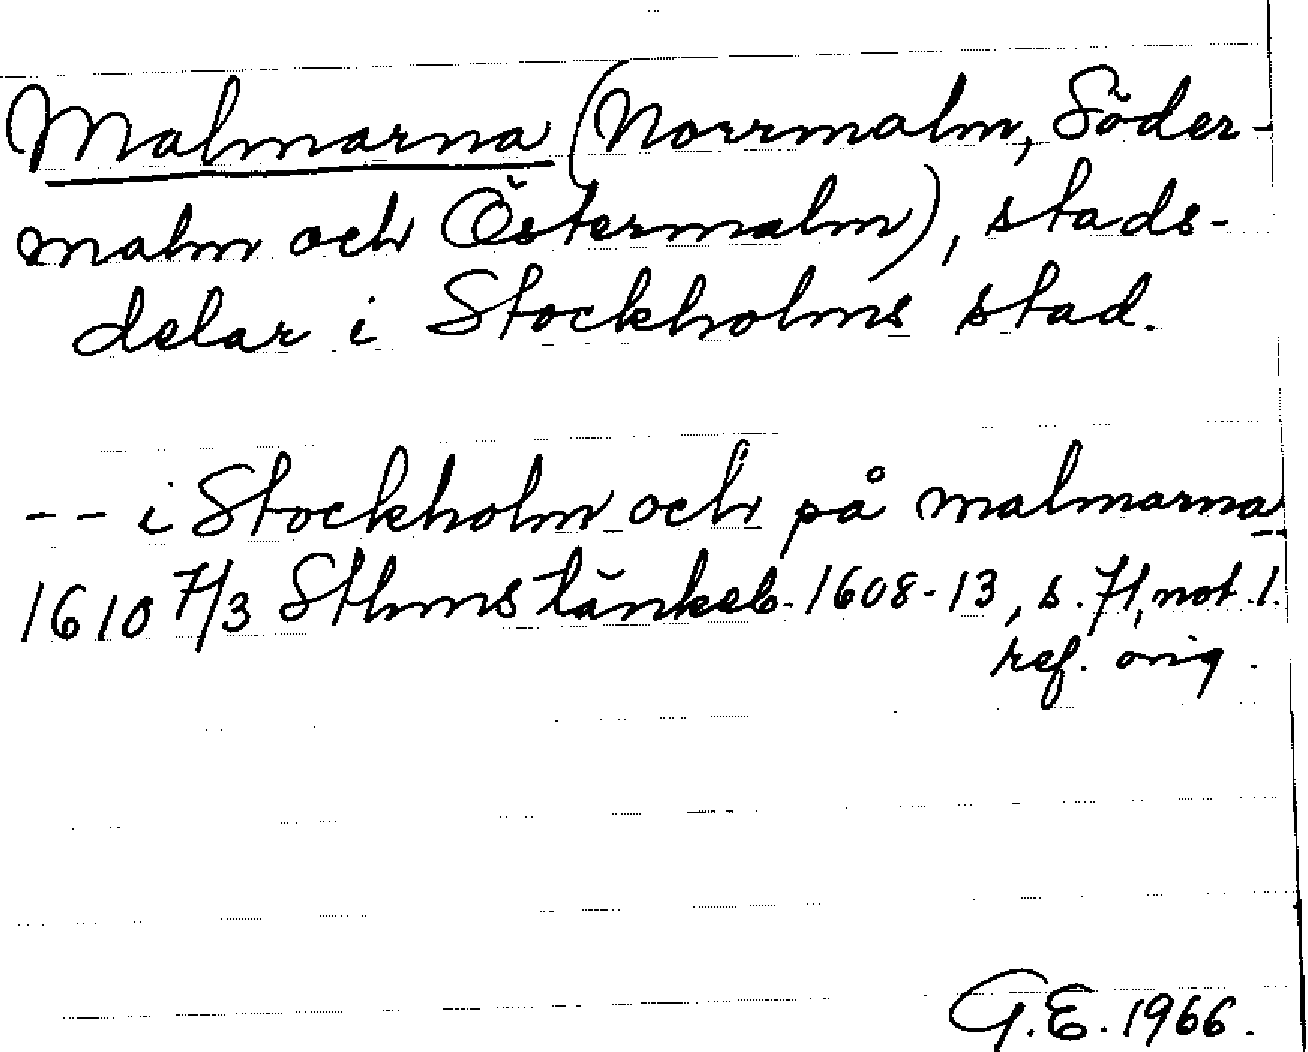 Malmarna (Norrmalm, Söder-
malm och Östermalm), stads-
delar i Stockholms stad.
-- i Stockholm och på malmarna --
1610 7/3 Sthms tänkeb. 1608-13, s. 71, not 1.
ref. orig.
G.E. 1966.